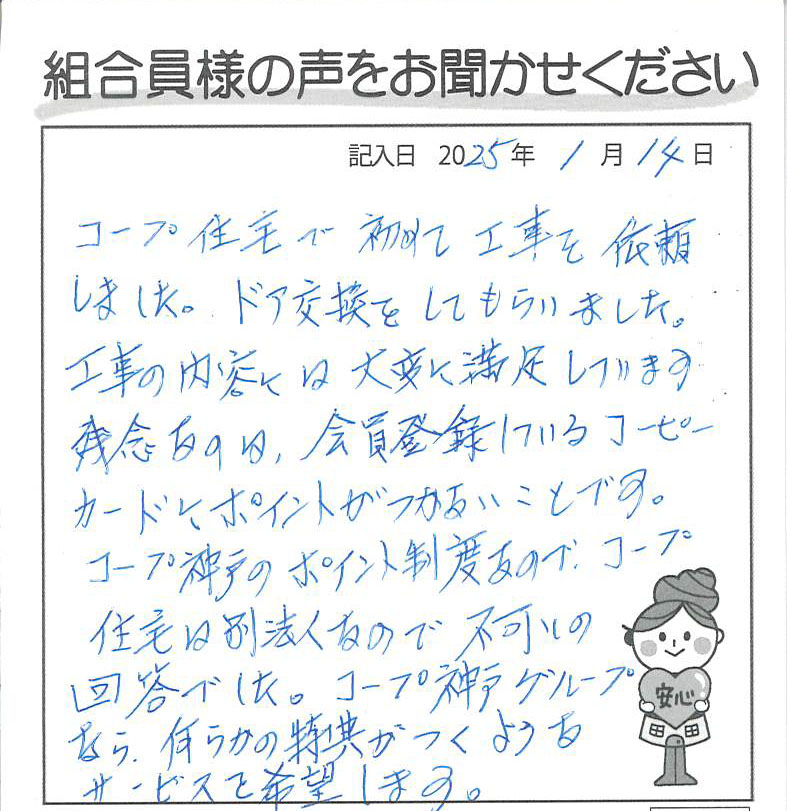 組合員様の声をお聞かせください
記入日 2025年 1月14日
コープ住宅で初めて工事を依頼
しました。ドア交換をしてもらいました。
工事の内容には大変に満足しています
残念なのは、会員登録しているコーピー
カードにポイントがつかないことです。
コープ神戸のポイント制度なので、コープ
住宅は別法人なので不可との
回答でした。コープ神戸グループ
なら、何らかの特典がつくような
サービスを希望します。
安心